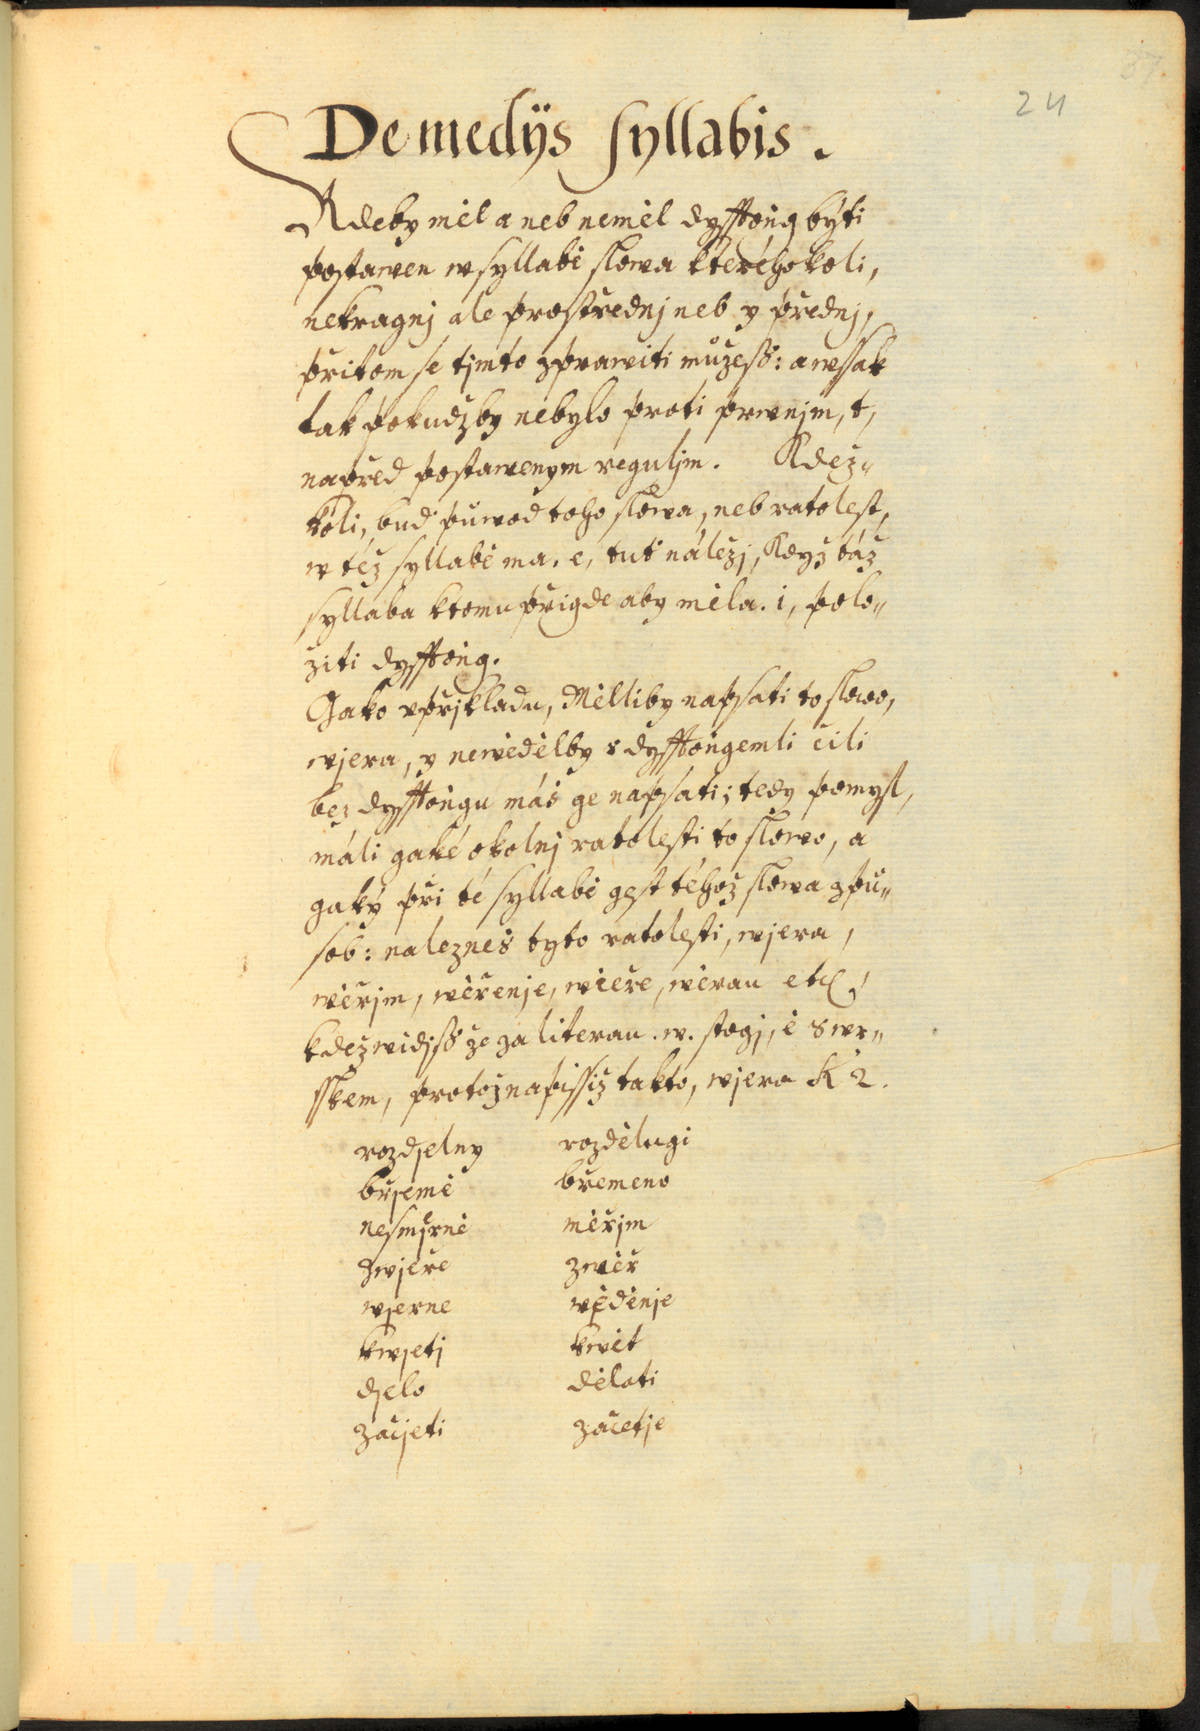 37.
24
De medijs syllabis.
Kdeby mel a neb nemel dyfftong býti
postawen w syllabě slowa kteréhokoli,
nekragnj ale prostřednj neb y přednj,
přitom se tjmto zprawiti můžeß: awssak
tak pokudžby nebylo proti prwnjm, t,
napřed postawenym reguljm. Kdež„
koli, buď půwod toho slowa, neb ratolest,
w též syllabě ma. e, tuť náležj, Když táž
syllaba ktomu přigde aby měla. i, polo„
žiti dyfftong.
Gako vpřjkladu, Mělliby napsati to slowo,
wjera, y newěděl by s dyfftongemli čili
bez dyfftongu máš ge napsati; tedy pomysl,
máli gaké okolnj ratolesti to slowo, a
gaký při té syllabě gest téhož slowa zpu„
sob: nalezneš tyto ratolesti, wjera,
wěřjm, wěřenje, wěře, wěrau etc.
kdež widjß že za literau. w. stogj, ě swr„
sskem, protož napissiž takto, wjera K 2.
rozdjelny rozdělugi
břjemě břemeno
nesmjrně měřjm
zwjere zwěř
wjerne wědenje
kwjetj kwět
djelo dělati
začjeti začetje
MZK
MZK